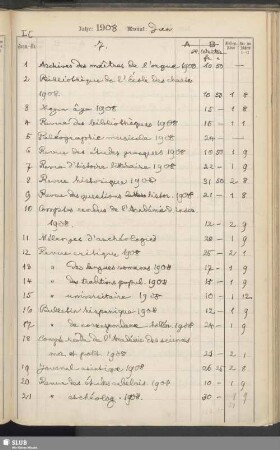 IC Jahr: 1908 Monat:
A B
fr. c
1 Archives des maîtres de l'orgue 1908 10 50
2 Bibliothèque de l'École des chartes
1908. 10 - 1 8
4 Revue des bibliothèques 1908. 15 - 1 1
5 Paléographie musicale 1908
6 Revue des études grecques 1908. 10 50 1 9
7 Revue d'histoire littéraire 1908. 1 9
8 Revue historique 1908 31 50 2 8
9 Revue des questions histor. 1908. 21 - 1 8
10 Comptes rendus de l'Académie d.
1908. 12 - 2 9
11 Mélanges d'archéologie 20 - 1 9
12 Revue critique 1908 25 - 2 1
13 " des langues romanes 1908. 17 - 1 9
14 " des traditions popul. 1908. 15 - 1 9
15 " universitaire 1908 10 - 1 12
16 Bulletin hispanique 1908. 12 - 1 3
17 " de correspondance hellén. 1908. 24 - 1 9
18 Compte rendu de l'Académie des sciences
mor. et polit. 1908. 2 1
19 Journal asiatique 1908. 26 25 2 8
20 Revue des études 1908. 10 - 1 9
21 " archéolog. 1908. 30 - 1 9
SLUB